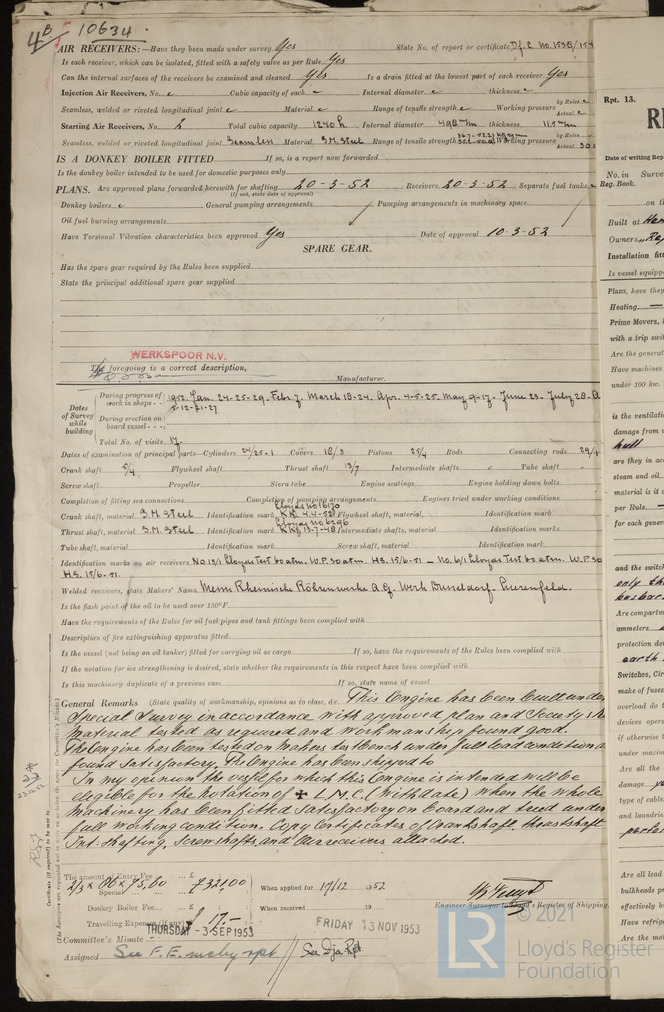 4B 10634
AIR RECEIVERS:—Have they been made under survey Yes State No. of report or certificate
Is each receiver, which can be isolated, fitted with a safety valve as per Rule Yes
Can the internal surfaces of the receivers be examined and cleaned Yes Is a drain fitted at the lowest part of each receiver Yes
Injection Air Receivers, No. Cubic capacity of each Internal diameter thickness
Seamless, welded or riveted longitudinal joint Material Range of tensile strength Working pressure by Rules Actual
Starting Air Receivers, No. 2 Total cubic capacity Internal diameter 498 mm thickness
Seamless, welded or riveted longitudinal joint Seamless Material S.M. Steel Range of tensile strength Working pressure by Rules Actual
IS A DONKEY BOILER FITTED If so, is a report now forwarded
Is the donkey boiler intended to be used for domestic purposes only
PLANS. Are approved plans forwarded herewith for shafting 20-3-52 Receivers 20-3-52 Separate fuel tanks
(If not, state date of approval)
Donkey boilers General pumping arrangements Pumping arrangements in machinery space
Oil fuel burning arrangements
Have Torsional Vibration characteristics been approved Yes Date of approval 10-3-52
SPARE GEAR.
Has the spare gear required by the Rules been supplied
State the principal additional spare gear supplied
WERKSPOOR N.V.
The foregoing is a correct description,
Manufacturer.
Dates of Survey while building
During progress of work in shops - - 1952. Jan. 24-25-29. Febr. 7. March 18-24. Apr. 4-5-25. May 9-17. June 23. July 28.
During erection on board vessel - - -
Total No. of visits 17.
Dates of examination of principal parts—Cylinders 24/25-1 Covers 18/3 Pistons 25/4 Rods Connecting rods
Crank shaft 5/4 Flywheel shaft Thrust shaft 13/7 Intermediate shafts Tube shaft
Screw shaft Propeller Stern tube Engine seatings Engine holding down bolts
Completion of fitting sea connections Completion of pumping arrangements Engines tried under working conditions
Crank shaft, material S.M. Steel Identification mark Lloyds No 16170 KK. 4-4-52 Flywheel shaft, material Identification mark
Thrust shaft, material S.M. Steel Identification mark Lloyds No 6296 Intermediate shafts, material Identification marks
Tube shaft, material Identification mark Screw shaft, material Identification mark
Identification marks on air receivers No 13/1 Lloyds Test 60 atm. W.P. 30 atm. H.S. 15/6-51 — No. 6/1 Lloyds Test 60 atm. W.P. 30
H.S. 15/6-51.
Welded receivers, state Makers' Name Rheinische Röhrenwerke A.G. Werk
Is the flash point of the oil to be used over 150°F
Have the requirements of the Rules for oil fuel pipes and tank fittings been complied with
Description of fire extinguishing apparatus fitted
Is the vessel (not being an oil tanker) fitted for carrying oil as cargo If so, have the requirements of the Rules been complied with
If the notation for ice strengthening is desired, state whether the requirements in this respect have been complied with
Is this machinery duplicate of a previous case If so, state name of vessel
General Remarks (State quality of workmanship, opinions as to class, &c. This Engine has been built under
Special Survey in accordance with approved plan and Society's
Material tested as required and workmanship found good.
The Engine has been tested on Makers testbench under full load condition
found satisfactory. The Engine has been shipped to
In my opinion the vessel for which this Engine is intended will be
eligible for the notation of ✠ L.M.C. (with date) when the whole
Machinery has been fitted satisfactory on board and tried under
full working condition. Copy Certificates of Crankshaft, thrustshaft
Int. shafting, Screwshafts and Air receivers attached.
Certificate (if required) to be sent to
The amount of Entry Fee .. £
Special ... £ When applied for 17/12 1952
Donkey Boiler Fee... £ When received 19
Travelling Expenses (if any) £ 17-
Engineer Surveyor to Lloyd's Register of Shipping.
THURSDAY - 3 SEP 1953 FRIDAY 13 NOV 1953
Committee's Minute
Assigned See F.E. mchy rpt. See Rpt
© 2021
LR
Lloyd's Register
Foundation
Rpt. 13.
Date of writing Rep
No. in Surve
Reg. Book.
on th
Built at
Owners
Installation fitt
Is vessel equipp
Plans, have they
Heating
Prime Movers,
with a trip swit
Are the general
Have machines
under 100 kw.
is the ventilatio
damage from
hull
are they in acc
steam and oil
material is it
per Rule
for each gener
and the switch
only th
busbar
Are compartm
ammeters
protection de
earth
Switches, Circ
make of fuses
overload do t
devices opera
if otherwise t
under maxim
Are all the
damage
type of cable
and laundrie
Are all lead
bulkheads p
effectively b
Have refrig
Are the mot